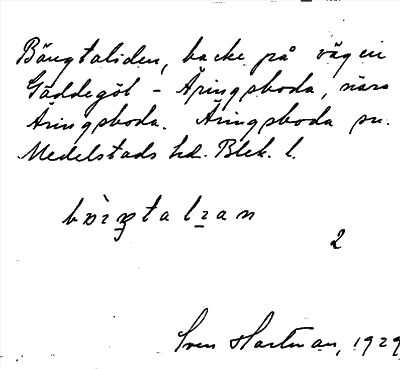 Bängtaliden, backe på vägen
Gäddegöl - Åringsboda, nära
Åringsboda. Åringsboda sn.
Medelstads hd. Blek. l.
2
Sven Hartman, 1929